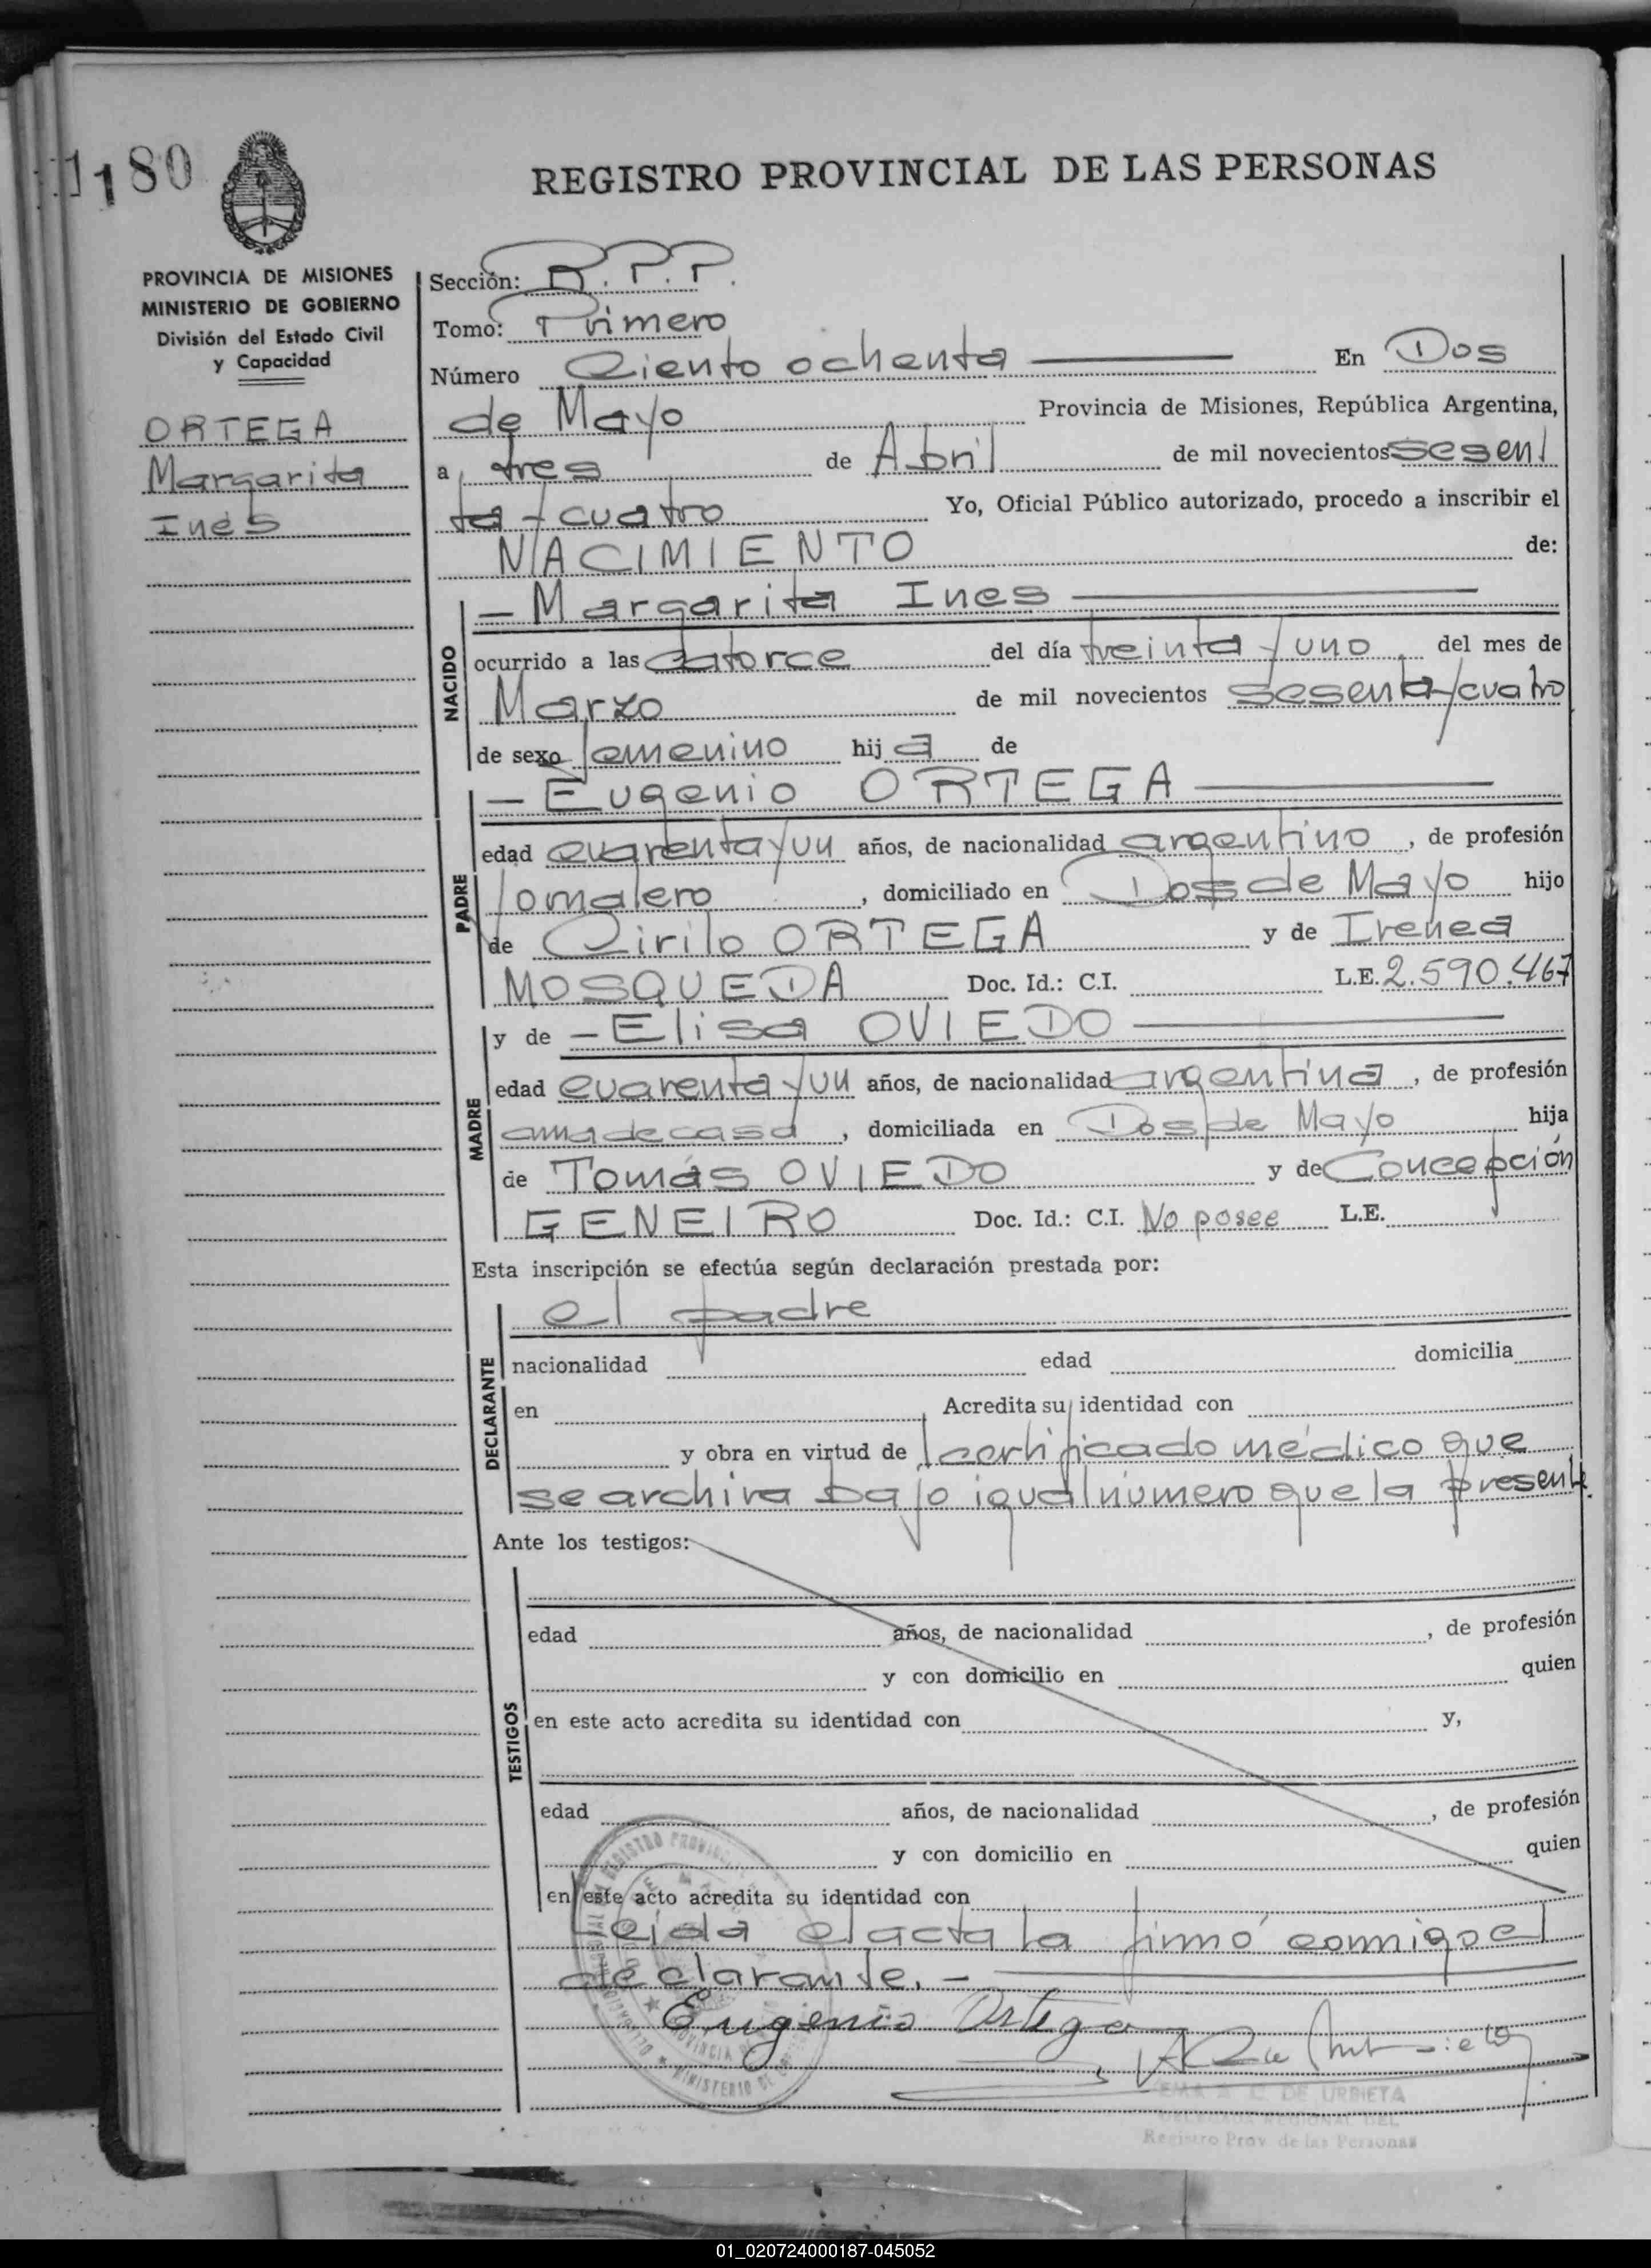 180
REGISTRO PROVINCIAL DE LAS PERSONAS
PROVINCIA DE MISIONES
MINISTERIO DE GOBIERNO
División del Estado Civil
y Capacidad
ORTEGA
Margarita
Inés
Sección: R.P.P.
Tomo: Primero
Número Ciento ochenta En Dos
de Mayo Provincia de Misiones, República Argentina,
a tres de Abril de mil novecientos sesen
ta y cuatro Yo, Oficial Público autorizado, procedo a inscribir el
NACIMIENTO de:
NACIDO
- Margarita Ines
ocurrido a las catorce del día treinta y uno del mes de
Marzo de mil novecientos sesenta y cuatro
de sexo femenino hija de
PADRE
- Eugenio ORTEGA
edad cuarenta y un años, de nacionalidad argentino, de profesión
jornalero, domiciliado en Dos de Mayo hijo
de Cirilo ORTEGA y de Irenea
MOSQUEDA Doc. Id.: C.I. L.E. 2.590.467
MADRE
y de - Elisa OVIEDO
edad cuarenta y un años, de nacionalidad argentina, de profesión
ama de casa, domiciliada en Dos de Mayo hija
de Tomás OVIEDO y de Concepción
GENEIRO Doc. Id.: C.I. No posee L.E.
Esta inscripción se efectúa según declaración prestada por:
DECLARANTE
el padre
nacionalidad edad domicilia
en Acredita su identidad con
y obra en virtud de certificado médico que
se archiva bajo igual número que la presente.
Ante los testigos:
TESTIGOS
edad años, de nacionalidad , de profesión
y con domicilio en quien
en este acto acredita su identidad con y,
edad años, de nacionalidad , de profesión
y con domicilio en quien
en este acto acredita su identidad con
Leida el acta la firmó conmigo el
declarante. -
Eugenio Ortega
DE URRIETA
Registro Prov. de las Personas
01_020724000187-045052